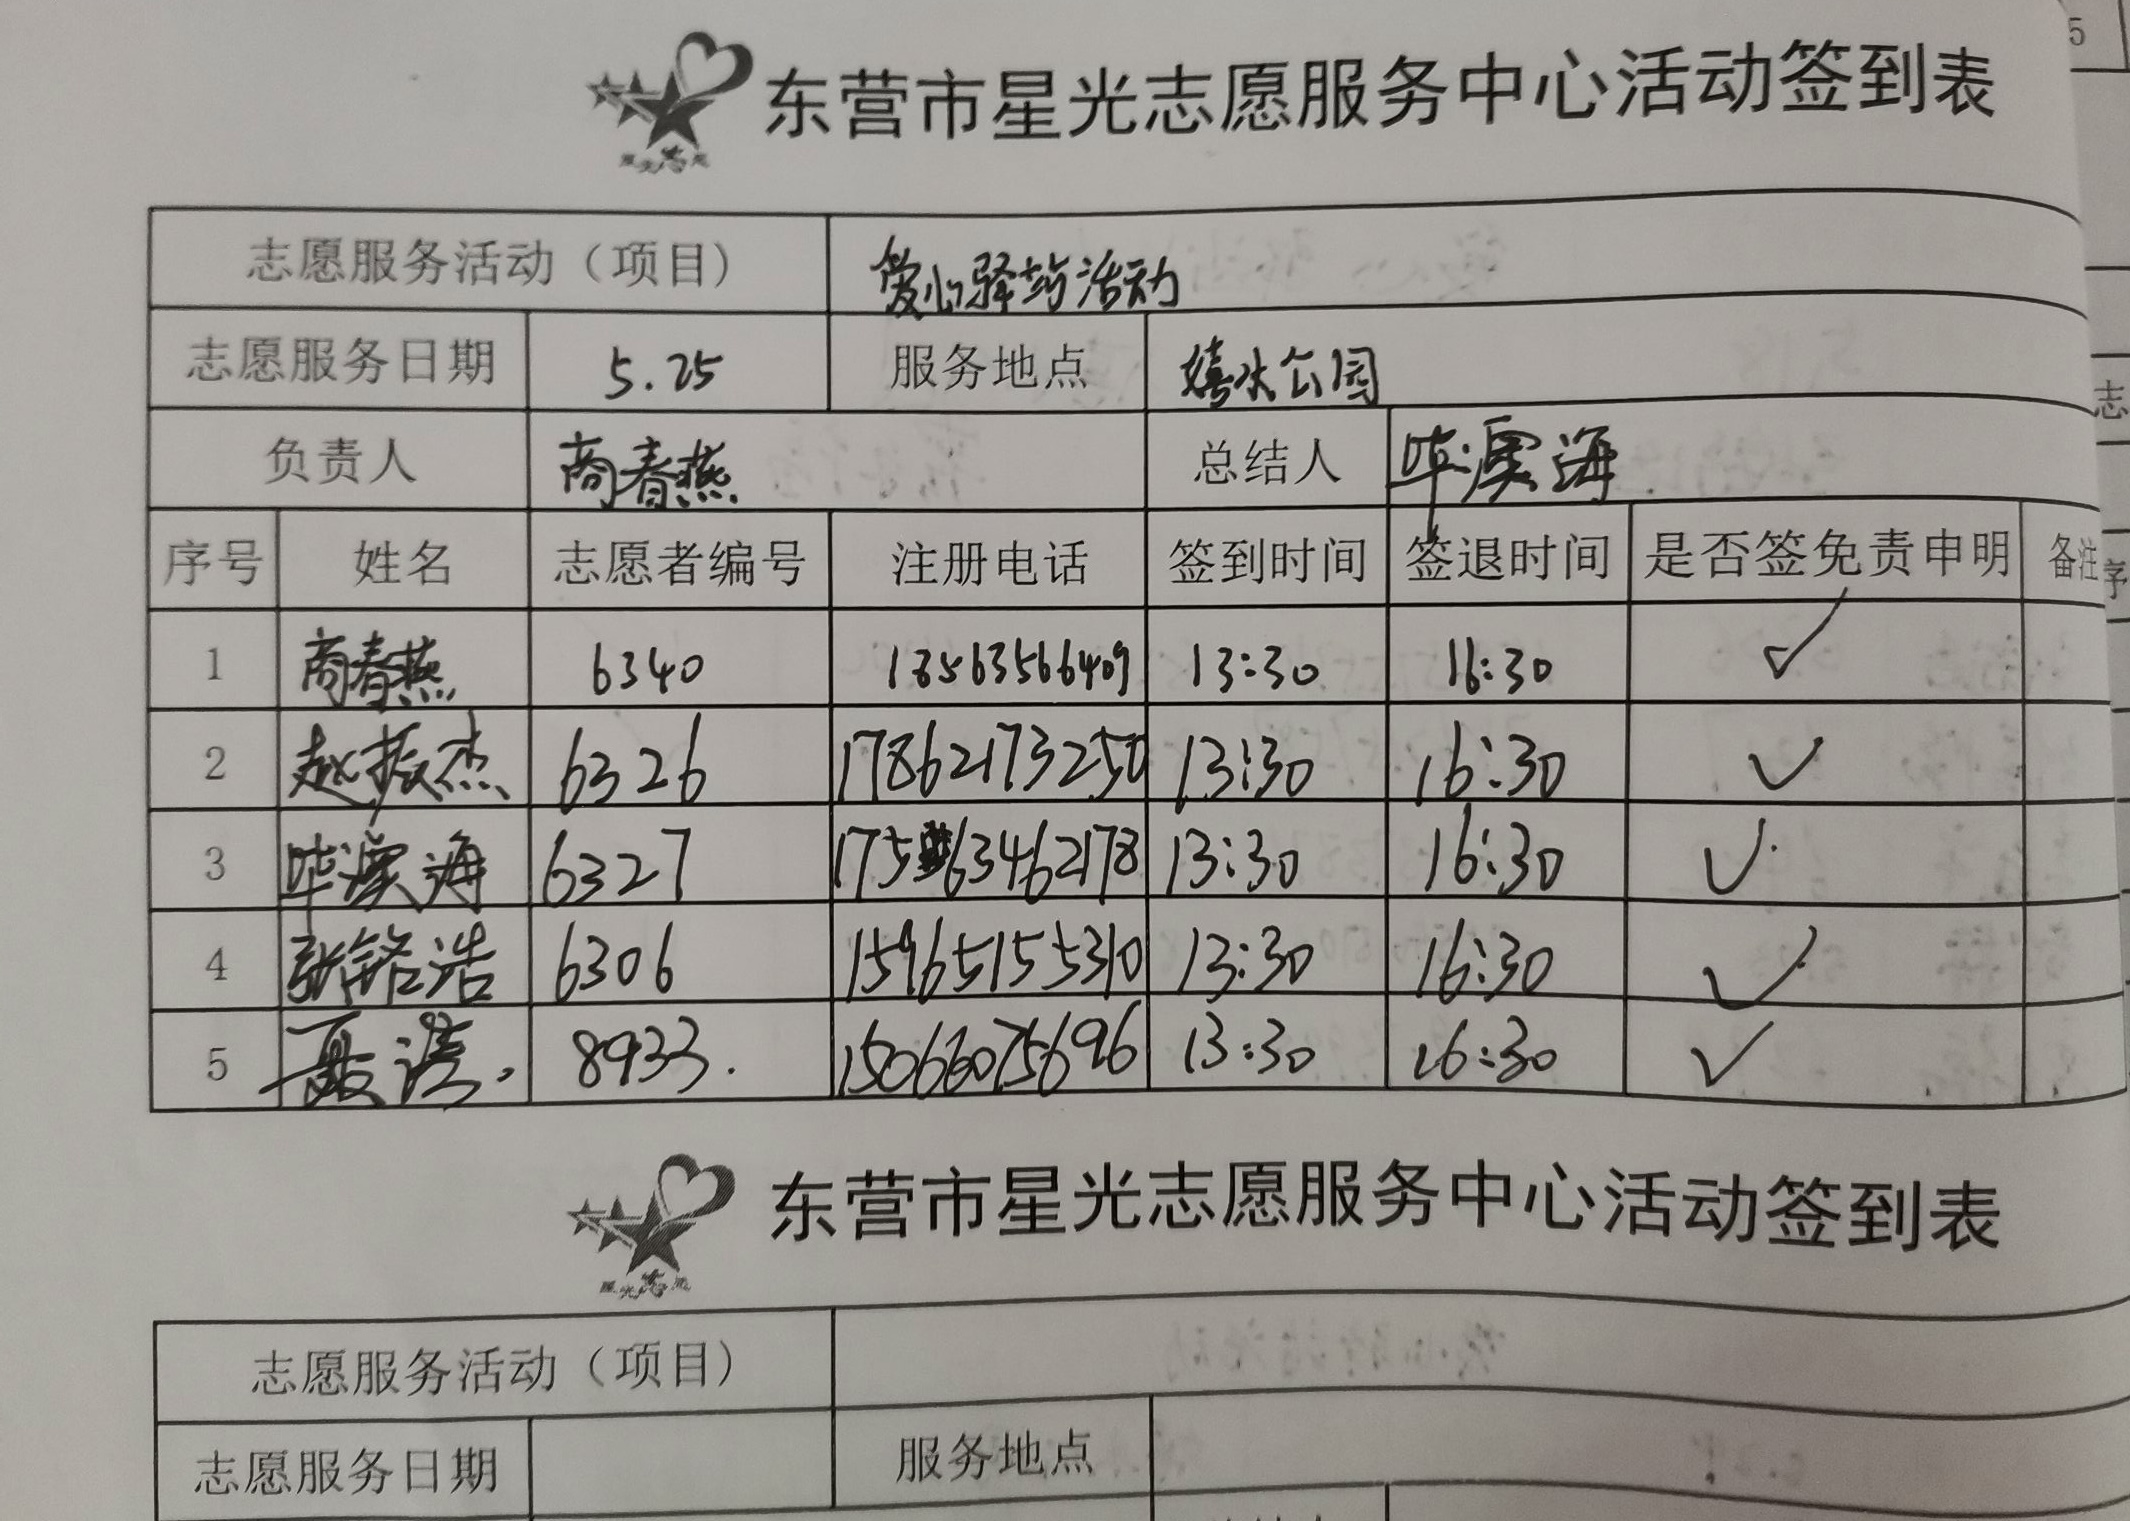 东营市星光志愿服务中心活动签到表
星光志愿
志愿服务活动（项目） 爱心驿站活动
志愿服务日期 5.25 服务地点 嬉水公园
负责人 商春燕 总结人 毕溟海
序号 姓名 志愿者编号 注册电话 签到时间 签退时间 是否签免责申明 备注
1 商春燕 6340 18563566409 13:30 16:30 ✓
2 赵振杰 6326 17862173250 13:30 16:30 ✓
3 毕溟海 6327 17563462178 13:30 16:30 ✓
4 张铭浩 6306 15965155310 13:30 16:30 ✓
5 聂涛. 8933. 15066075696 13:30 16:30 ✓
东营市星光志愿服务中心活动签到表
星光志愿
志愿服务活动（项目）
志愿服务日期 服务地点
5
志
序